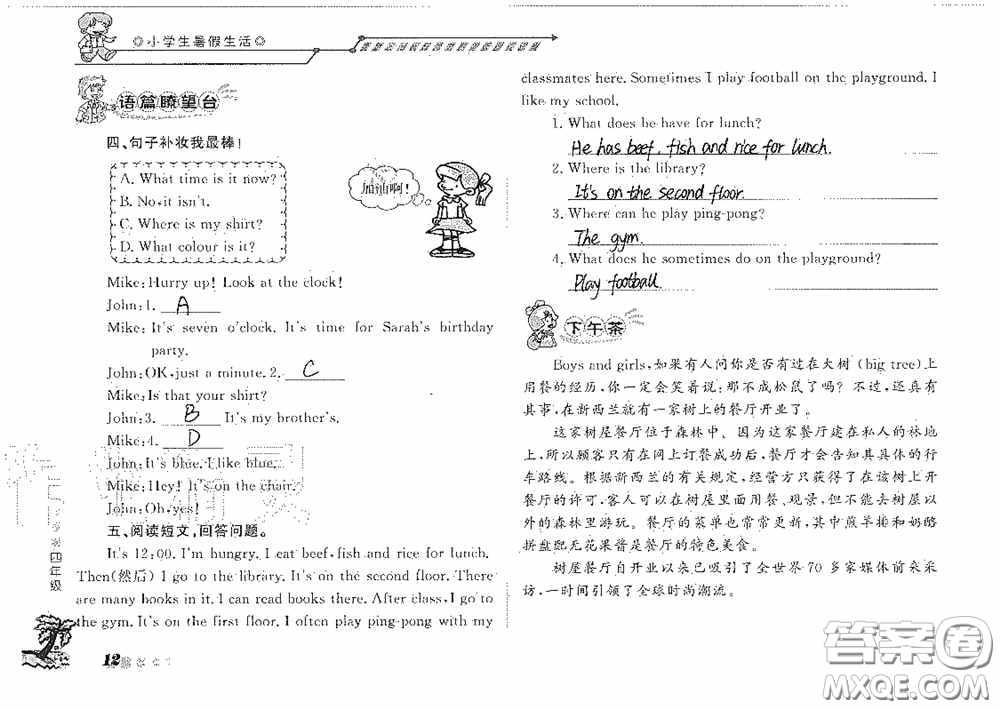 小学生暑假生活
语篇瞭望台
四、句子补妆我最棒!
A. What time is it now?
B. No,it isn't.
C. Where is my shirt?
D. What colour is it?
加油啊!
Mike:Hurry up! Look at the clock!
John:1. A
Mike:It's seven o'clock. It's time for Sarah's birthday
party.
John:OK,just a minute. 2. C
Mike:Is that your shirt?
John:3. B It's my brother's.
Mike:4. D
John:It's blue. I like blue.
Mike:Hey! It's on the chair.
John:Oh,yes!
五、阅读短文,回答问题。
It's 12:00. I'm hungry. I eat beef,fish and rice for lunch.
Then(然后) I go to the library. It's on the second floor. There
are many books in it. I can read books there. After class,I go to
the gym. It's on the first floor. I often play ping-pong with my
四年级
12
classmates here. Sometimes I play football on the playground. I
like my school.
1. What does he have for lunch?
He has beef, fish and rice for lunch.
2. Where is the library?
It's on the second floor.
3. Where can he play ping-pong?
The gym.
4. What does he sometimes do on the playground?
Play football.
下午茶
Boys and girls,如果有人问你是否有过在大树(big tree)上
用餐的经历,你一定会笑着说:那不成松鼠了吗?不过,还真有
其事,在新西兰就有一家树上的餐厅开业了。
这家树屋餐厅位于森林中、因为这家餐厅建在私人的林地
上,所以顾客只有在网上订餐成功后,餐厅才会告知其具体的行
车路线。根据新西兰的有关规定,经营方只获得了在该树上开
餐厅的许可,客人可以在树屋里面用餐、观景,但不能在树屋以
外的森林里游玩。餐厅的菜单也常常更新,其中煎羊排和奶酪
拼盘配无花果酱是餐厅的特色美食。
树屋餐厅自开业以来已吸引了全世界 70 多家媒体前来采
访,一时间引领了全球时尚潮流。
答案圈
MXQE.COM